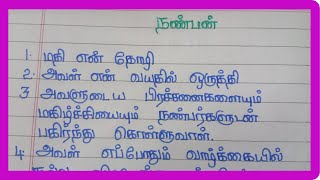 நண்பன்
1. மகி என் தோழி
2. அவள் என் வயதில் ஒருத்தி
3 அவளுடைய பிரச்சனைகளையும்
மகிழ்ச்சியையும் நண்பர்களுடன்
பகிர்ந்து கொள்ளுவாள்.
4. அவள் எப்போதும் வாழ்க்கையில்